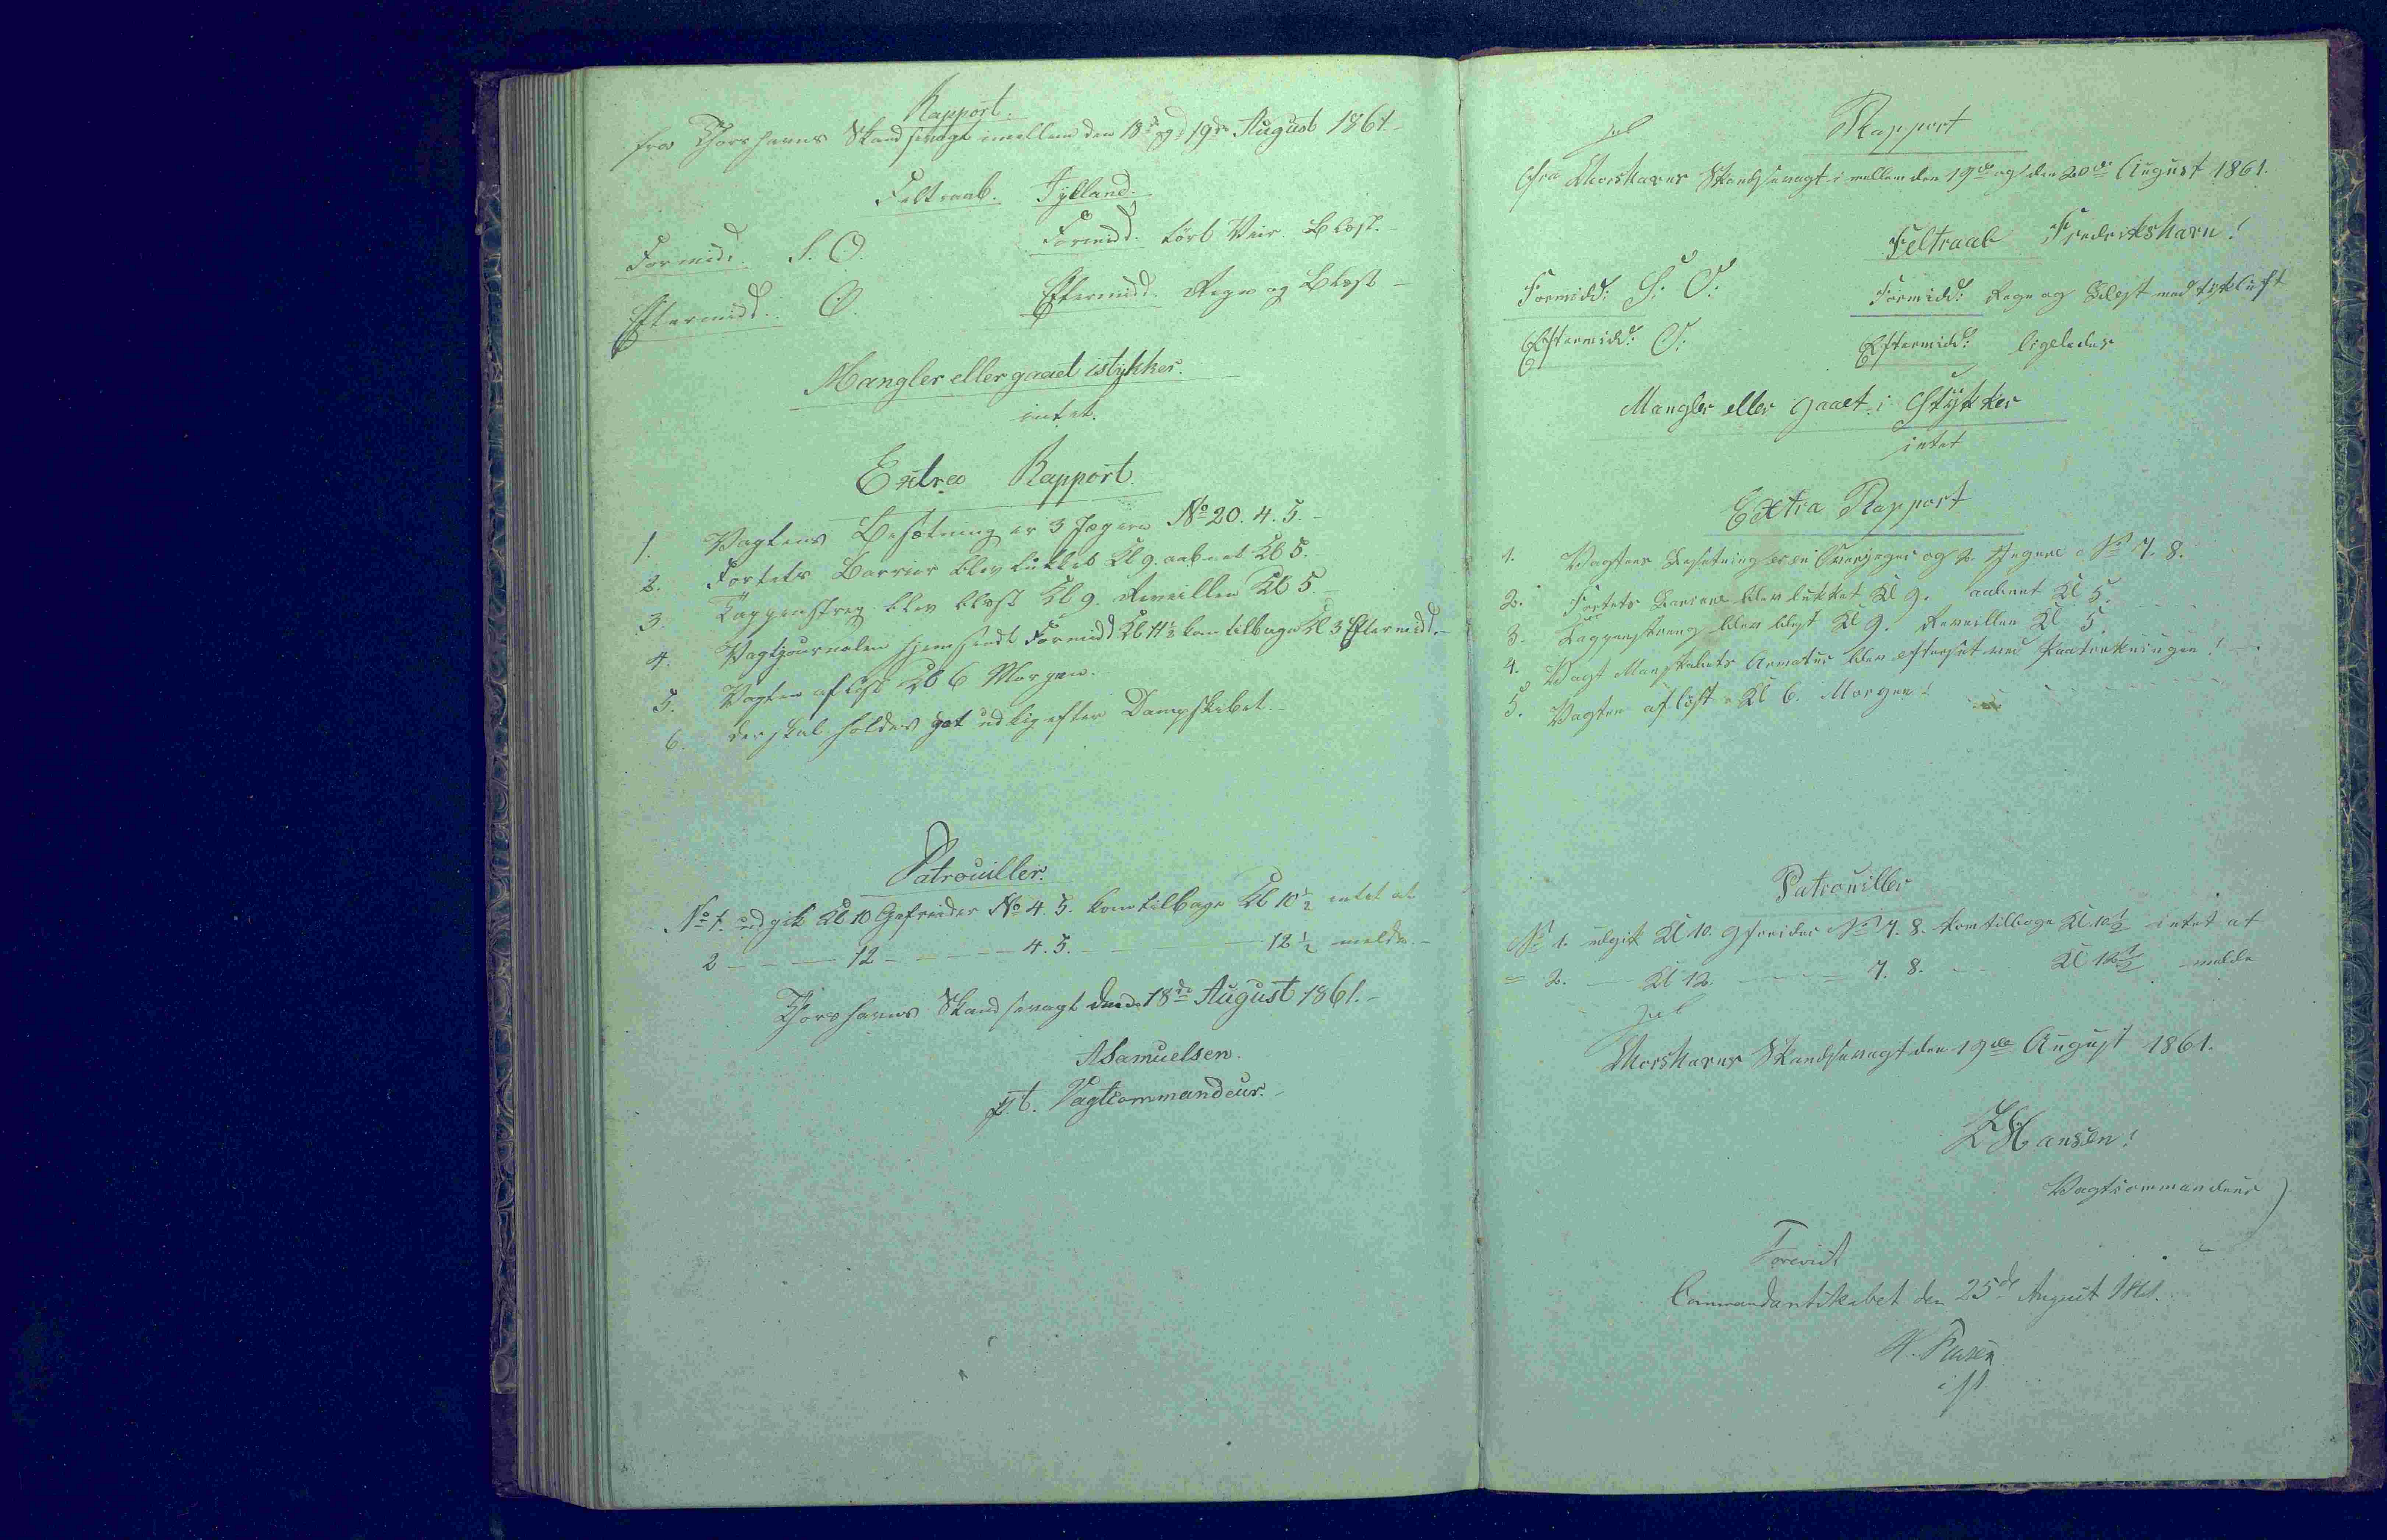 Rapport.
fra Thorshavns Skandsevagt imellem den 18de og 19de August 1861.
Feltraab. Jylland.
Formidd. S. O. Formidd. tört Veir Blæst.
Eftermidd. O. Eftermidd. Regn og Blæst
Mangler eller gaaet istykker.
intet.
Extra Rapport.
1. Vagtens Besætning er 3 Jægere No 20. 4. 5.
2. Fortets Barrier blev lukket Kl 9. aabnet Kl 5.
3. Tappenstreg blev blæst Kl 9. Reveillen Kl 5.
4. Vagtjournalen hjemsendt Formidd Kl 11½ kom tilbage Kl 3 Eftermidd.
5. Vagten aflöst Kl 6 Morgen.
6. der skal holdes got udkig efter Dampskibet.
Patrouiller.
No 1. udgik Kl 10 Gefreider No 4. 5. kom tilbage Kl 10½ intet at
2 — 12 — 4. 5. — 12½ melde.
Thorshavns Skandsevagt den 18de August 1861.
ASamuelsen.
p.t. Vagtcommandeur.
Rapport
fra Thorshavns Skandsevagt imellem den 19de og den 20de August 1861.
Feltraab Fredrikshavn!
Formidd: S: O: Formidd: Regn og Blæst med tykluft
Eftermidd: O: Eftermidd: ligeledes
Mangler eller gaaet i Stykker
intet
Extra Rapport
1. Vagtens Besetning er en Overjeger og 2 Jegere No 7. 8.
2. Fortets Bariere blev lukket Kl 9. aabnet Kl 5.
3. Tappenstreng blev blest Kl 9. Reveillen Kl 5.
4. Vagt Manskabets Armatur blev efterset ved Paatrekningen!
5. Vagten aflöst Kl 6. Morgen!
Patrouiller
No 1. udgik Kl 10. gfreider No 7. 8. kom tilbage Kl. 10½ intet at
= 2. — Kl 12. — 7. 8. — Kl 12½ melde
Thorshavns Skandsevagt den 19de August 1861.
Hansen!
Vagtcommandeur
Forevist
Commandantskabet den 25de August 1861.